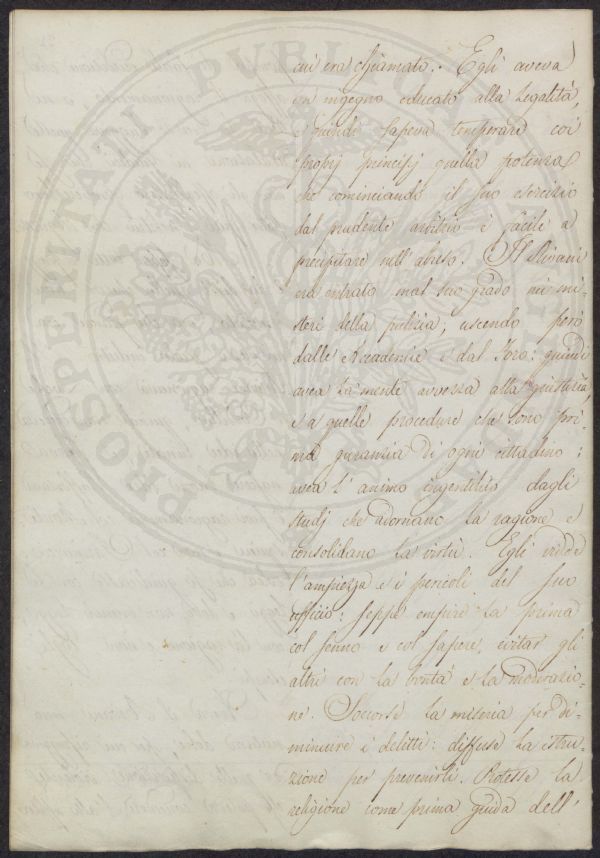 cui era chiamato. Egli aveva
un' ingegno educato alla Legalità,
e quindi sapeva temperare coi
proprj principj quella potenza
che cominciando il suo esercizio
dal prudente arbitrio è facile a
precipitare nell' abuso. Il
era entrato mal suo grado nei mi-
steri della polizia; uscendo però
dalle Accademie e dal Foro: quindi
avea la mente avvezza alla giustizia,
e a quelle procedure che sono pri-
ma guranzia di ogni cittadino;
avea l' animo ingentilito dagli
studj che adornano la ragione e
consolidano la virtù. Egli vidde
l'ampiezza e i pericoli del suo
officio: seppe empire la prima
col senno e col sapere, evitar gli
altri con la bontà e la moderazio-
ne. Soccorse la miseria per di-
minuire i delitti: diffuse la istru-
zione per prevenirli. Protesse la
religione come prima guida dell'
PROSPERITATI PVBLICAE